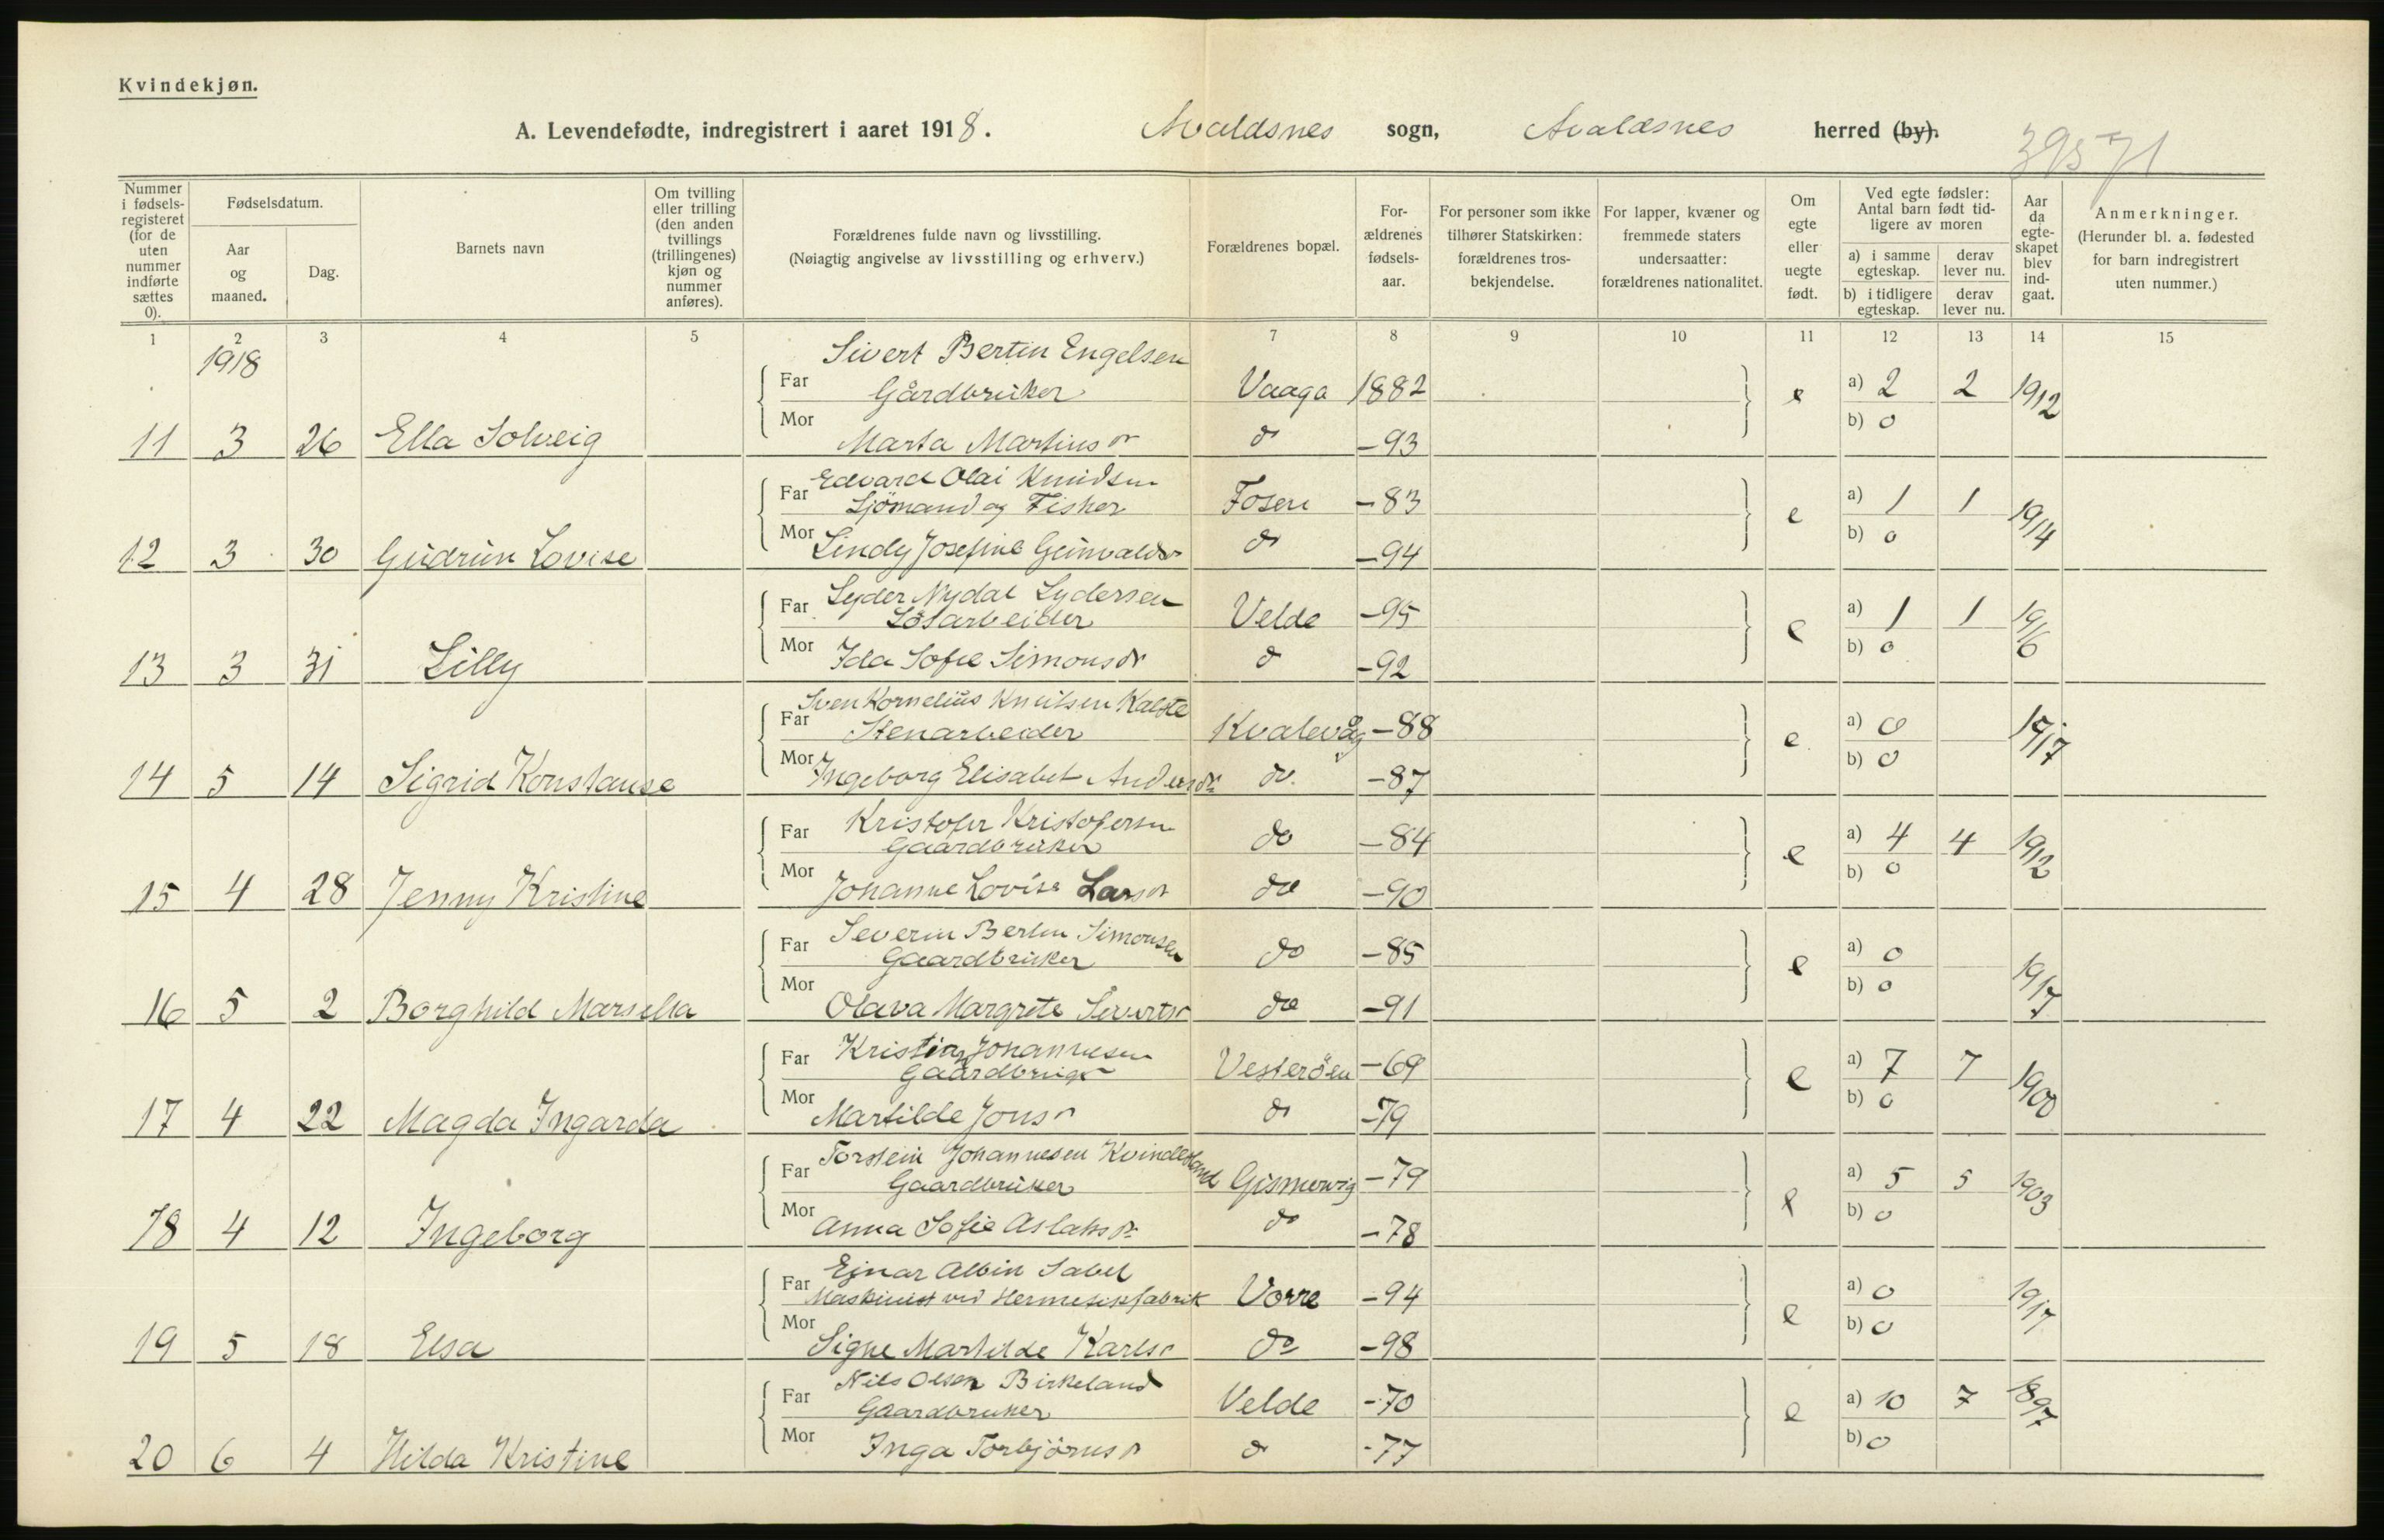 Kvindekjøn.
A. Levendefødte, indregistrert i aaret 1918. Avaldsnes sogn, Avaldsnes herred (by).
39571
Nummer i fødselsregisteret (for de uten nummer indførte sættes 0).
Fødselsdatum.
Aar og maaned.
Dag.
Barnets navn
Om tvilling eller trilling (den anden tvillings (trillingenes) kjøn og nummer anføres).
Forældrenes fulde navn og livsstilling. (Nøiagtig angivelse av livsstilling og erhverv.)
Forældrenes bopæl.
Forældrenes fødselsaar.
For personer som ikke tilhører Statskirken: forældrenes trosbekjendelse.
For lapper, kvæner og fremmede staters undersaatter: forældrenes nationalitet.
Om egte eller uegte født.
Ved egte fødsler: Antal barn født tidligere av moren
a) i samme egteskap. derav lever nu.
b) i tidligere egteskap. derav lever nu.
Aar da egteskapet blev indgaat.
Anmerkninger. (Herunder bl. a. fødested for barn indregistrert uten nummer.)
1 2 3 4 5 6 7 8 9 10 11 12 13 14 15
1918
Sivert Bertin Engelsen
Far Gårdbruker Vaaga 1882 e a) 2 2 1912
Mor b) 0
11 3 26 Ella Solveig Marta Martinsdr do -93
Edvard Olai Knudsen
Far Sjömand og Fisker Fosen -83 e a) 1 1 1914
12 3 30 Gudrun Lovise Mor Lindy Josefine do -94 b) 0
Far Lyder Nydal Lydersen
Løsarbeider Velde -95 e a) 1 1 1916
13 3 31 Lilly Mor Ida Sofie Simonsdr do -92 b) 0
Sven Kornelius Knutsen Kalstø
Far Stenarbeider Kvalevåg -88 e a) 0 1917
14 5 14 Sigrid Konstanse Mor Ingeborg Elisabet Andersdr do. -87 b) 0
Far Kristofer Kristofersen
Gaardbruker do -84 e a) 4 4 1912
15 4 28 Jenny Kristine Mor Johanne Lovise Larsdr do -90 b) 0
Far Severin Bertin Simonsen
Gaardbruker do -85 e a) 0 1917
16 5 2 Borghild Marsella Mor Olava Margrete Sivertsdr do -91 b) 0
Far Kristian Johannesen
Gaardbruger Vesterøen -69 e a) 7 7 1900
17 4 22 Magda Ingarda Mor Martilde Jonsdr do -79 b) 0
Far Torstein Johannesen Kvindesland
Gaardbruker Gismervig -79 e a) 5 5 1903
18 4 12 Ingeborg Mor Anna Sofie Aslaksdr do -78 b) 0
Einar Albin Sabel
Far Maskinist ved Hermetikfabrik Vorre -94 e a) 0 1917
19 5 18 Elsa Mor Signe Martilde Karlsdr do -98 b) 0
Far Nils Olsen Birkeland
Gaardbruker Velde -70 e a) 10 7 1897
20 6 4 Hilda Kristine Mor Inga Torbjørnsdr do -77 b) 0